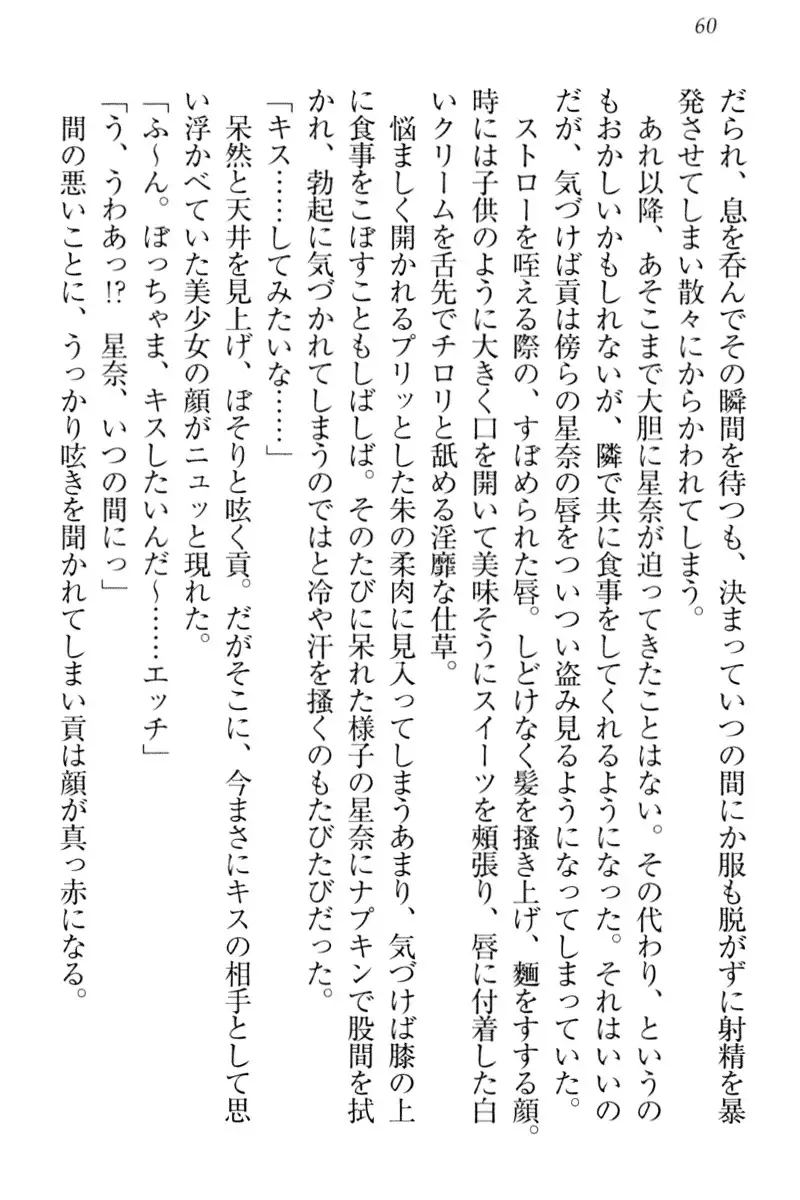 60
だられ、息を呑んでその瞬間を待つも、決まっていつの間にか服も脱がずに射精を暴
発させてしまい散々にからかわれてしまう。
あれ以降、あそこまで大胆に星奈が迫ってきたことはない。その代わり、というの
もおかしいかもしれないが、隣で共に食事をしてくれるようになった。それはいいの
だが、気づけば貢は傍らの星奈の唇をついつい盗み見るようになってしまっていた。
ストローを咥える際の、すぼめられた唇。しどけなく髪を掻き上げ、麺をすする顔。
時には子供のように大きく口を開いて美味そうにスイーツを頬張り、唇に付着した白
いクリームを舌先でチロリと舐める淫靡な仕草。
悩ましく開かれるプリッとした朱の柔肉に見入ってしまうあまり、気づけば膝の上
に食事をこぼすこともしばしば。そのたびに呆れた様子の星奈にナプキンで股間を拭
かれ、勃起に気づかれてしまうのではと冷や汗を掻くのもたびたびだった。
「キス……してみたいな……」
呆然と天井を見上げ、ぼそりと呟く貢。だがそこに、今まさにキスの相手として思
い浮かべていた美少女の顔がニュッと現れた。
「ふ～ん。ぼっちゃま、キスしたいんだ～……エッチ」
「う、うわあっ!?　星奈、いつの間にっ」
間の悪いことに、うっかり呟きを聞かれてしまい貢は顔が真っ赤になる。